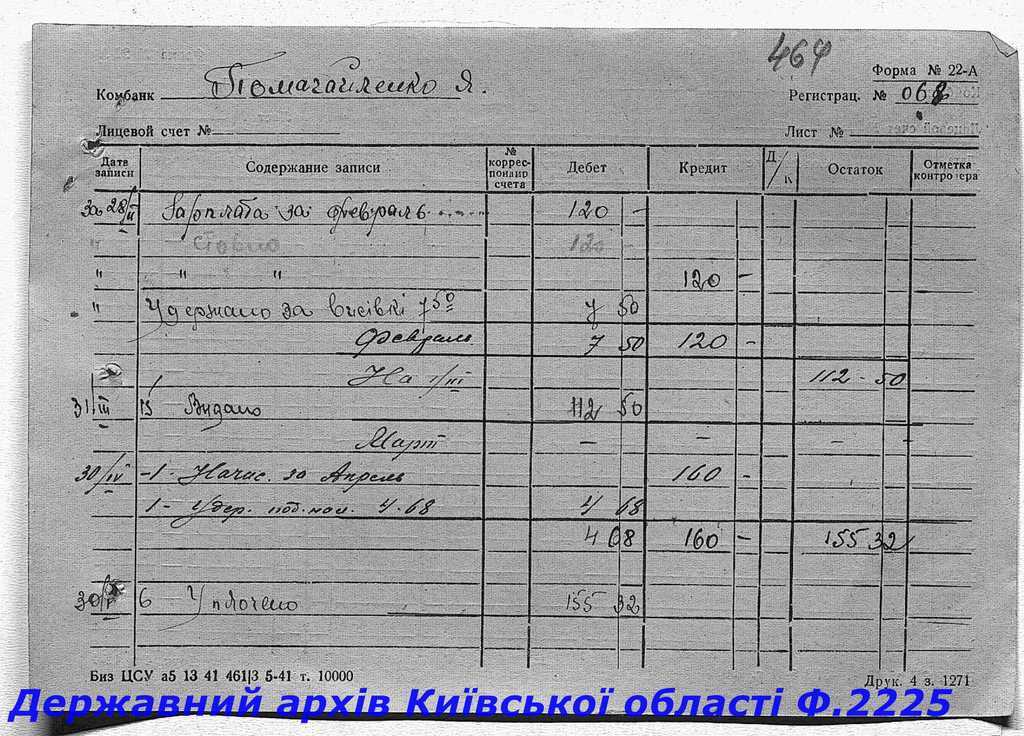 464
Форма № 22-А
Комбанк Помагайленко Я.
Регистрац. № 068
Лицевой счет №
Лист №
Дата записи Содержание записи № коррес-пондир счета Дебет Кредит Д/К Остаток Отметка контролера
За 28/II Зарплата за февраль 120 -
" Сторно 120 -
" " " 120 -
" Удержано за висівкі 7 50 7 50
Февраль 7 50 120 -
На 1/III 112 - 50
31/III 15 Видано 112 50
Март - - -
30/IV -1- Начис. за Апрель 160 -
1- Удер. под. нал. 4-68 4 68
4 68 160 - 155 32
30/V 6 Уплочено 155 32
Биз ЦСУ а5 13 41 461|3 5-41 т. 10000
Друк. 4 з. 1271
Державний архів Київської області Ф.2225